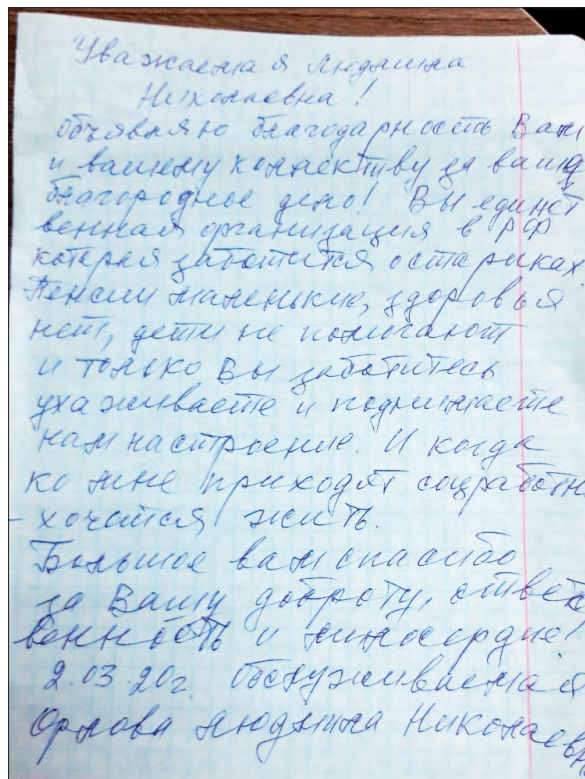 Уважаемая Людмила
Николаевна!
объявляю благодарность Вам
и вашему коллективу за вашу
благородное дело! Вы единст
венная организация в РФ
которая заботится о стариках.
Пенсии маленькие, здоровья
нет, дети не помогают
и только Вы заботитесь
ухаживаете и поднимаете
нам настроение. И когда
ко мне приходят соцработн
- хочется жить.
Большое вам спасибо
за Вашу доброту, ответст
венность и милосердие!
2.03.20г. Обслуживаемая
Орлова Людмила Николаевн